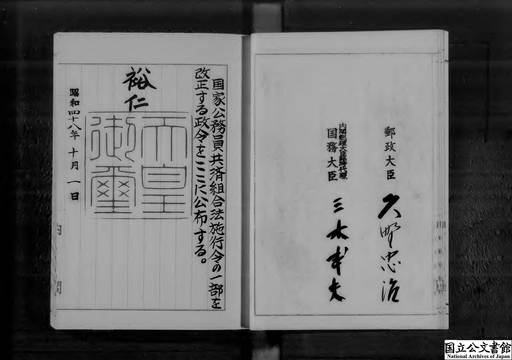 国家公務員共済組合法施行令の一部を
改正する政令をここに公布する。
裕仁
天皇
御璽
昭和四十八年十月一日
郵政大臣 久野忠治
内閣総理大臣臨時代理
国務大臣 三木武夫
国立公文書館
National Archives of Japan